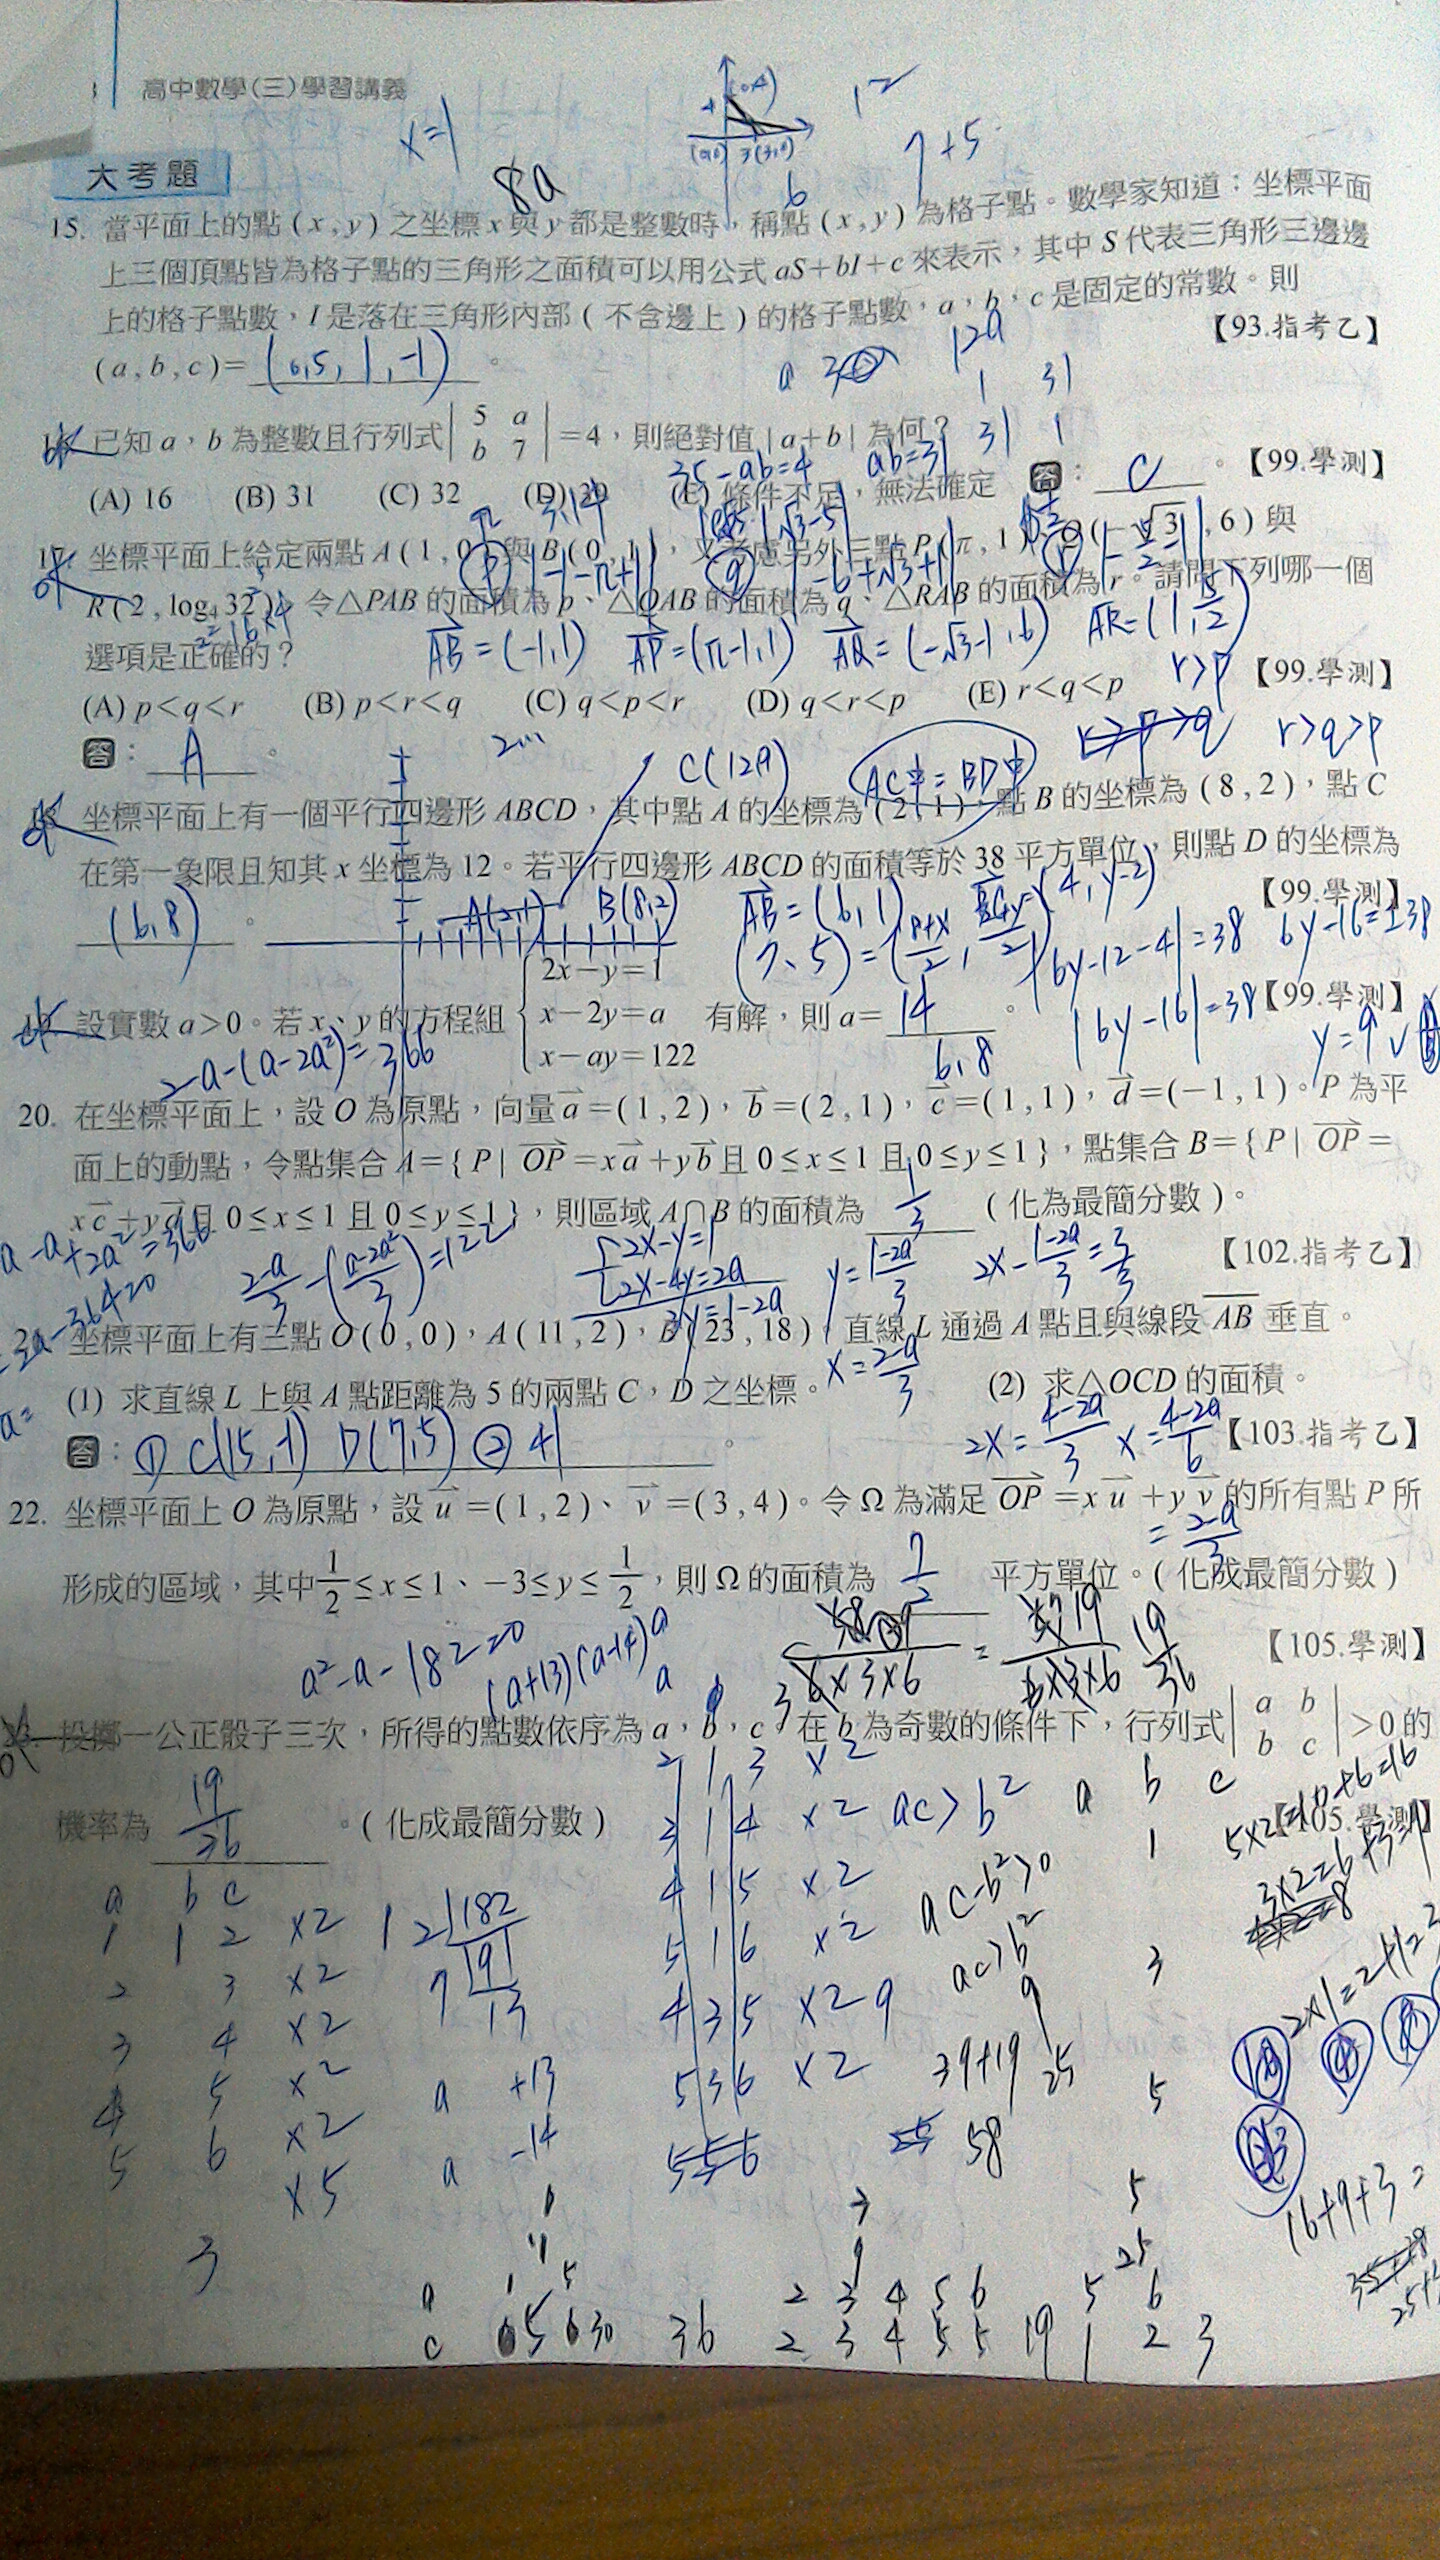 高中數學(三)學習講義
x=1
8a
(0,4)
4
(0,0) 3(3,0)
6
12
7+5
大考題
15. 當平面上的點 (x,y) 之坐標 x 與 y 都是整數時，稱點 (x,y) 為格子點。數學家知道：坐標平面
上三個頂點皆為格子點的三角形之面積可以用公式 aS+bI+c 來表示，其中 S 代表三角形三邊邊
上的格子點數，I 是落在三角形內部 ( 不含邊上 ) 的格子點數，a，b，c 是固定的常數。則
(a,b,c)= (0.5, 1, -1) 。 【93.指考乙】
12a
1 31
31 1
已知 a，b 為整數且行列式 | 5 a b 7 | =4，則絕對值 |a+b| 為何？
35-ab=4 ab=31
(A) 16 (B) 31 (C) 32 (D) 39 (E) 條件不足，無法確定 答： C 。 【99.學測】
17. 坐標平面上給定兩點 A(1,0) 與 B(0,1)，又考慮另外三點 P(π,1)，Q(-√3,6) 與
R(2,log₄32)，令△PAB 的面積為 p、△QAB 的面積為 q、△RAB 的面積為 r。請問下列哪一個
選項是正確的？ 【99.學測】
AB=(-1,1) AP=(π-1,1) AQ=(-√3-1,6) AR=(1,5/2)
r>p
(A) p<q<r (B) p<r<q (C) q<p<r (D) q<r<p (E) r<q<p
r>p>q r>q>p
答： A 。
C(12,9) AC中=BD中
坐標平面上有一個平行四邊形 ABCD，其中點 A 的坐標為 (2,1)，點 B 的坐標為 (8,2)，點 C
在第一象限且知其 x 坐標為 12。若平行四邊形 ABCD 的面積等於 38 平方單位，則點 D 的坐標為
(6,8) 。 【99.學測】
A(2,1) B(8,2) AB=(6,1) BC=(4,y-2)
|6y-12-4|=38 6y-16=±38
設實數 a>0。若 x、y 的方程組 { 2x-y=1 x-2y=a x-ay=122 有解，則 a= 14 。 【99.學測】
|6y-16|=38
y=9
6,8
2-a-(a-2a²)=366
20. 在坐標平面上，設 O 為原點，向量 a=(1,2)，b=(2,1)，c=(1,1)，d=(-1,1)。P 為平
面上的動點，令點集合 A={P| OP=xa+yb 且 0≤x≤1 且 0≤y≤1}，點集合 B={P| OP=
xc+yd 且 0≤x≤1 且 0≤y≤1}，則區域 A∩B 的面積為 1/3 ( 化為最簡分數 )。
【102.指考乙】
(2-a)/3-((a-2a²)/3)=122
2x-y=1
2x-4y=2a
3y=1-2a
y=(1-2a)/3
2x-(1-2a)/3=3/3
x=(2-a)/3
坐標平面上有三點 O(0,0)，A(11,2)，B(23,18)，直線 L 通過 A 點且與線段 AB 垂直。
(1) 求直線 L 上與 A 點距離為 5 的兩點 C，D 之坐標。 (2) 求△OCD 的面積。
2x=(4-2a)/3 x=(4-2a)/6
【103.指考乙】
答：① C(15,-1) D(7,5) ② 41 。
=(2-a)/3
22. 坐標平面上 O 為原點，設 u=(1,2)、v=(3,4)。令 Ω 為滿足 OP=xu+yv 的所有點 P 所
形成的區域，其中 1/2≤x≤1、-3≤y≤1/2，則 Ω 的面積為 7/2 平方單位。( 化成最簡分數 )
【105.學測】
a²-a-182=0
(a+13)(a-14)
6×3×6 = 6×3×6 19/36
投擲一公正骰子三次，所得的點數依序為 a，b，c。在 b 為奇數的條件下，行列式 | a b b c | >0 的
機率為 19/36 。( 化成最簡分數 ) 【105.學測】
a b c
1 1 2 ×2
2 3 ×2
3 4 ×2
4 5 ×2
5 6 ×2
×5
2 1 3 ×2
3 1 4 ×2
4 1 5 ×2
5 1 6 ×2
4 3 5 ×2 9
5 3 6 ×2
5 5 6
ac>b²
ac-b²>0
ac>b²
a b c
1
3
5
9
25
39+19
58
a +13
a -14
3
16+9+3=
1 3 5
9 25
a 1 5 2 3 4 5 6 5 6
c 6 5 6 30 36 2 3 4 5 5 19 1 2 3